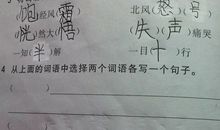 饱经风霜 北风怒号
恍然大悟 失声痛哭
一知半解 一目十行
4 从上面的词语中选择两个词语各写一个句子。